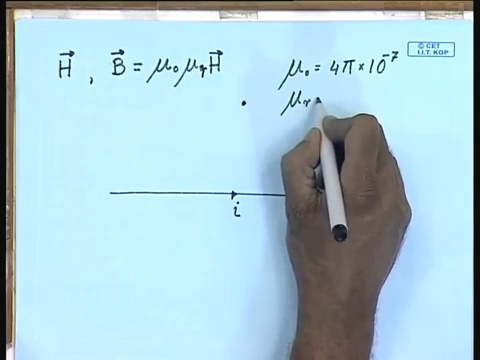 © CET
I.I.T. KGP
H⃗ , B⃗ = μ₀ μᵣ H⃗ μ₀ = 4π × 10⁻⁷
μᵣ
i